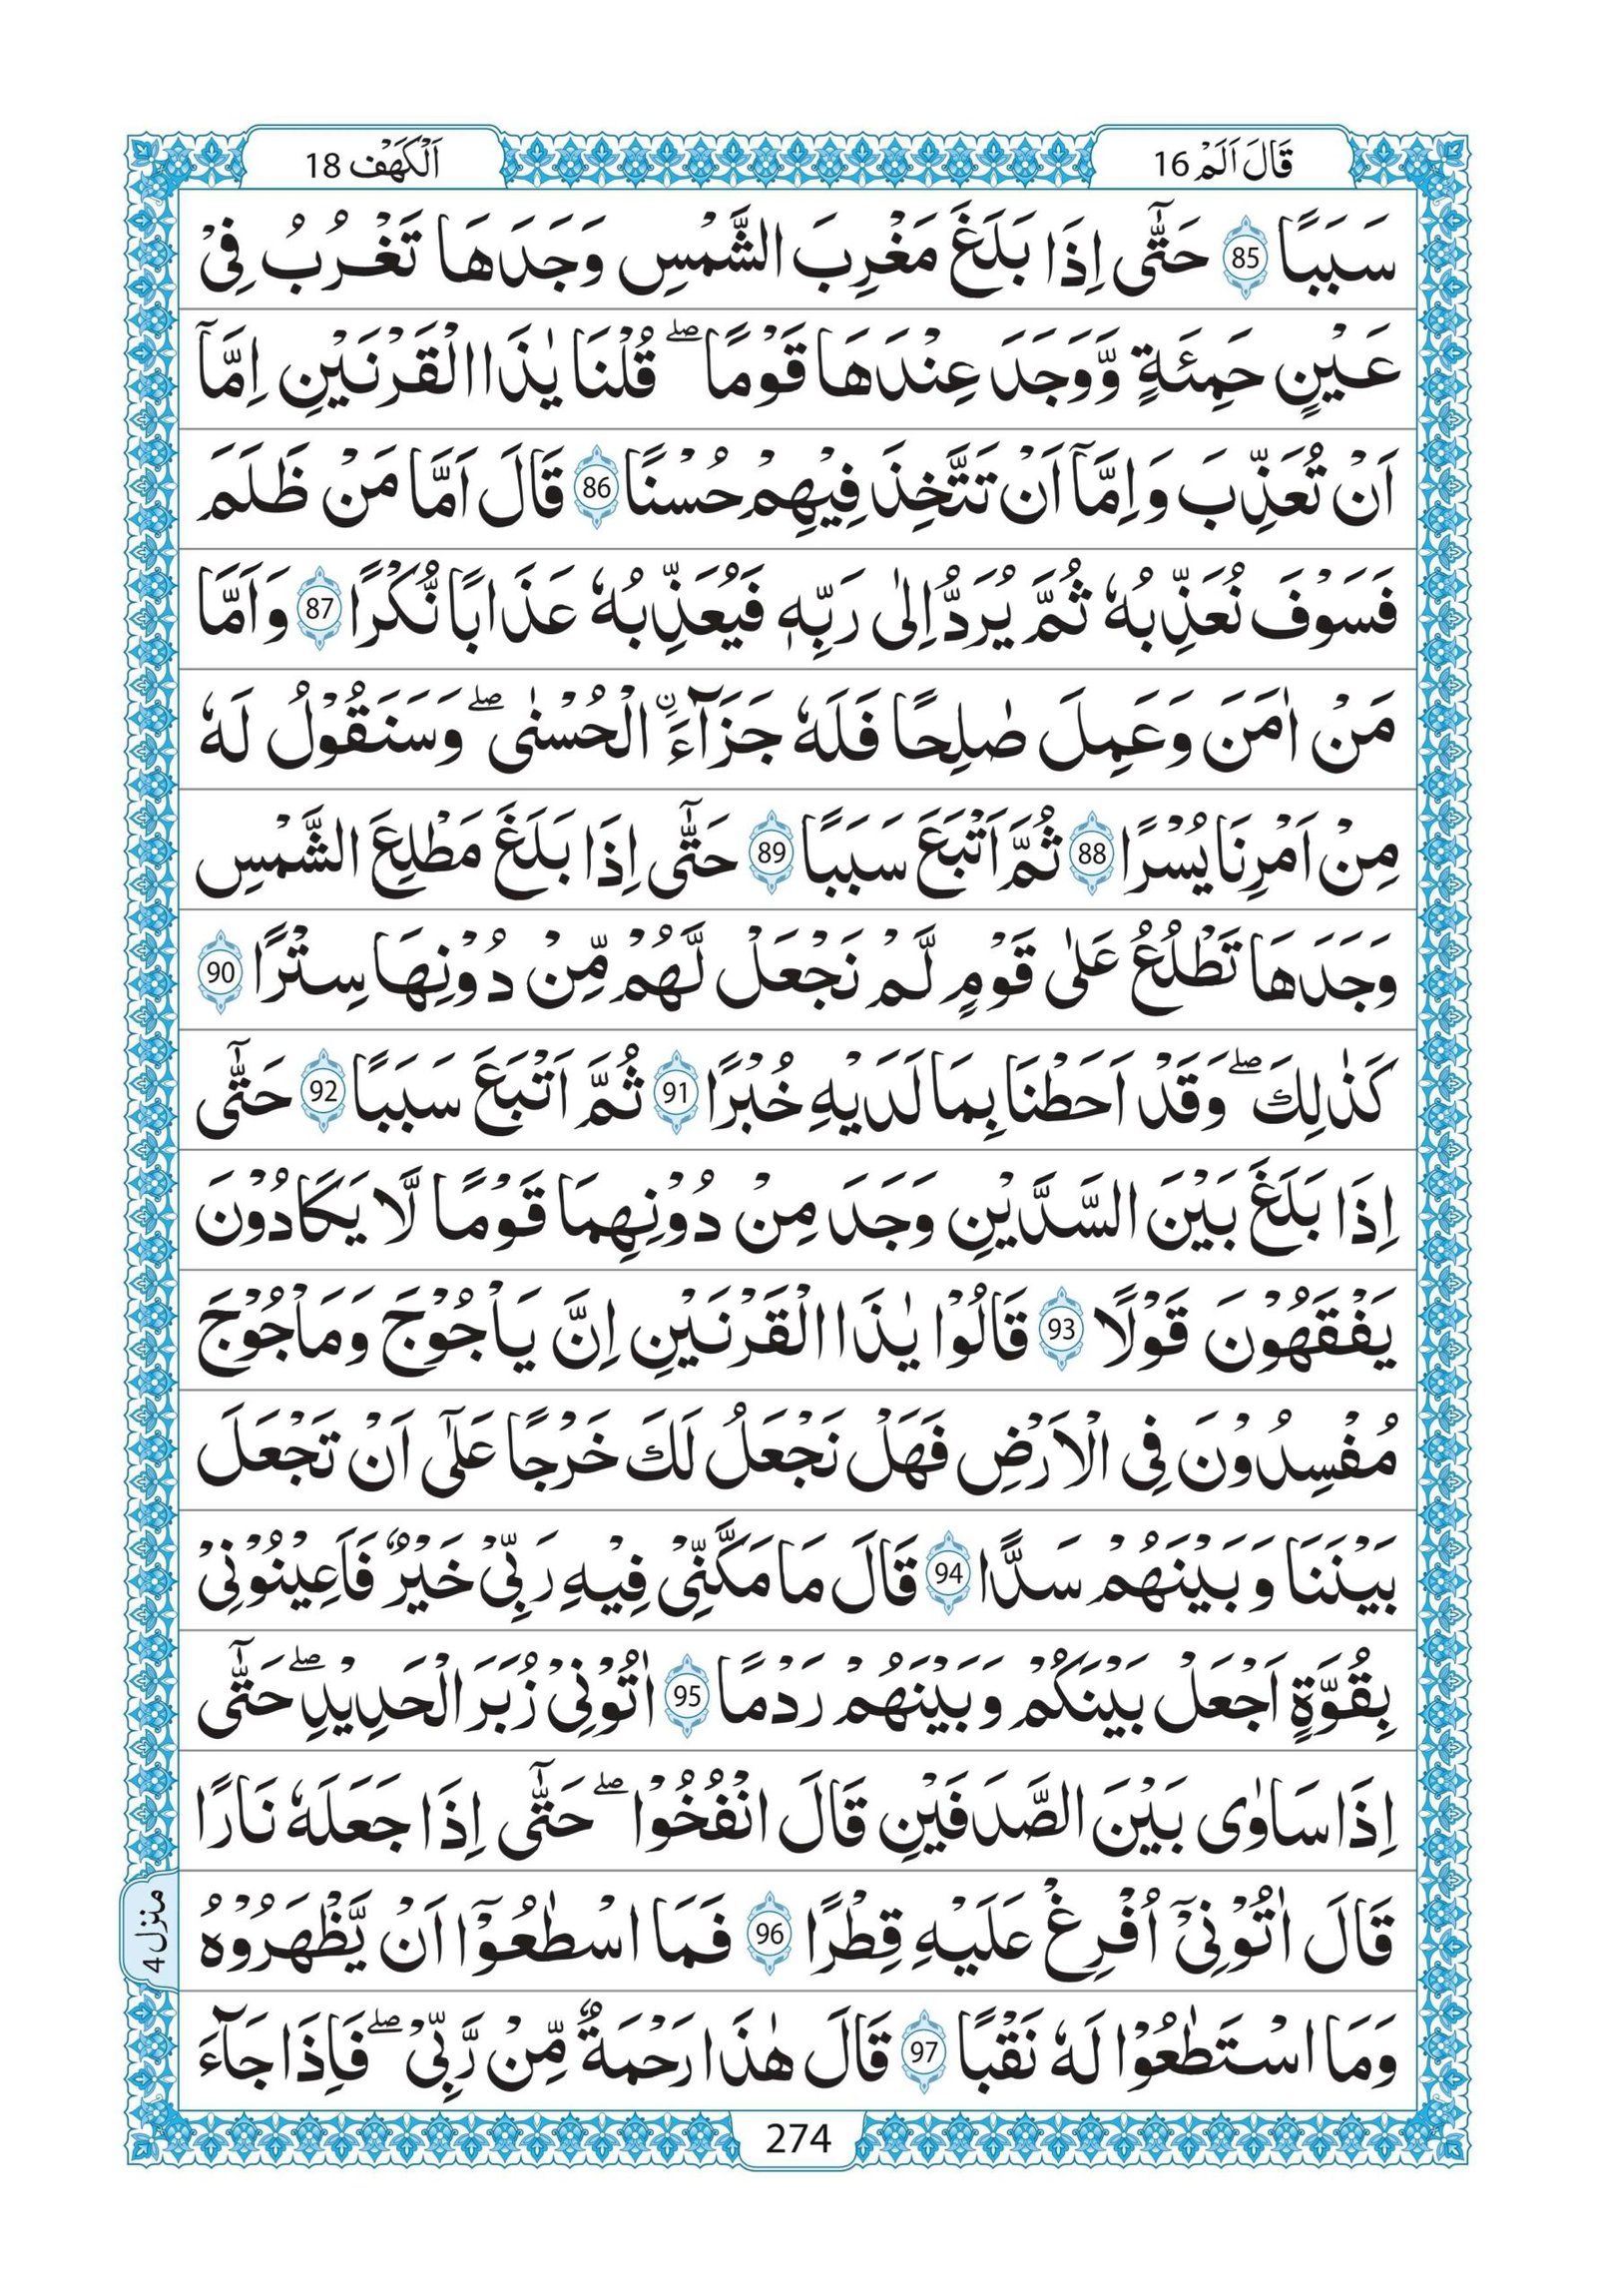 قَالَ اَلَمْ 16
اَلْكَهْف 18
سَبَبًا 85 حَتّٰٓى اِذَا بَلَغَ مَغْرِبَ الشَّمْسِ وَجَدَهَا تَغْرُبُ فِىْ
عَيْنٍ حَمِئَةٍ وَّوَجَدَ عِنْدَهَا قَوْمًا ۖ قُلْنَا يٰذَا الْقَرْنَيْنِ اِمَّآ
اَنْ تُعَذِّبَ وَاِمَّآ اَنْ تَتَّخِذَ فِيْهِمْ حُسْنًا 86 قَالَ اَمَّا مَنْ ظَلَمَ
فَسَوْفَ نُعَذِّبُهٗ ثُمَّ يُرَدُّ اِلٰى رَبِّهٖ فَيُعَذِّبُهٗ عَذَابًا نُّكْرًا 87 وَاَمَّا
مَنْ اٰمَنَ وَعَمِلَ صٰلِحًا فَلَهٗ جَزَآءَۨ الْحُسْنٰى ۖ وَسَنَقُوْلُ لَهٗ
مِنْ اَمْرِنَا يُسْرًا 88 ثُمَّ اَتْبَعَ سَبَبًا 89 حَتّٰٓى اِذَا بَلَغَ مَطْلِعَ الشَّمْسِ
وَجَدَهَا تَطْلُعُ عَلٰى قَوْمٍ لَّمْ نَجْعَلْ لَّهُمْ مِّنْ دُوْنِهَا سِتْرًا 90
كَذٰلِكَ ۖ وَقَدْ اَحَطْنَا بِمَا لَدَيْهِ خُبْرًا 91 ثُمَّ اَتْبَعَ سَبَبًا 92 حَتّٰٓى
اِذَا بَلَغَ بَيْنَ السَّدَّيْنِ وَجَدَ مِنْ دُوْنِهِمَا قَوْمًا لَّا يَكَادُوْنَ
يَفْقَهُوْنَ قَوْلًا 93 قَالُوْا يٰذَا الْقَرْنَيْنِ اِنَّ يَاْجُوْجَ وَمَاْجُوْجَ
مُفْسِدُوْنَ فِى الْاَرْضِ فَهَلْ نَجْعَلُ لَكَ خَرْجًا عَلٰٓى اَنْ تَجْعَلَ
بَيْنَنَا وَبَيْنَهُمْ سَدًّا 94 قَالَ مَا مَكَّنِّىْ فِيْهِ رَبِّىْ خَيْرٌ فَاَعِيْنُوْنِىْ
بِقُوَّةٍ اَجْعَلْ بَيْنَكُمْ وَبَيْنَهُمْ رَدْمًا 95 اٰتُوْنِىْ زُبَرَ الْحَدِيْدِ ۖ حَتّٰٓى
اِذَا سَاوٰى بَيْنَ الصَّدَفَيْنِ قَالَ انْفُخُوْا ۖ حَتّٰٓى اِذَا جَعَلَهٗ نَارًا
قَالَ اٰتُوْنِىْٓ اُفْرِغْ عَلَيْهِ قِطْرًا 96 فَمَا اسْطٰعُوْٓا اَنْ يَّظْهَرُوْهُ
وَمَا اسْتَطٰعُوْا لَهٗ نَقْبًا 97 قَالَ هٰذَا رَحْمَةٌ مِّنْ رَّبِّىْ ۖ فَاِذَا جَآءَ
منزل 4
274